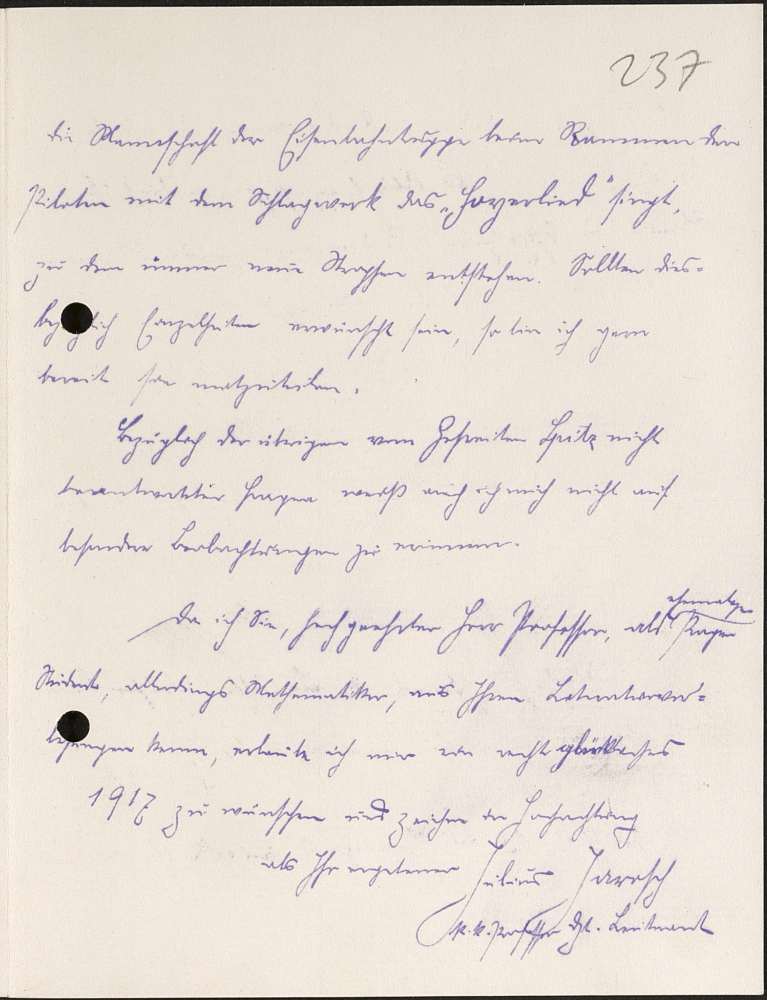 237
die Mannschaft der Eisenbahntruppe beim Rammen der
Piloten mit dem Schlagwerk das „Hoyerlied" singt,
zu dem immer neue Strophen entstehen. Sollten dies-
bezüglich Einzelheiten erwünscht sein, so bin ich gern
bereit sie mitzuteilen.
Bezüglich der übrigen vom Gefreiten Spitz nicht
beantworteter Fragen weiß auch ich mich nicht auf
besondere Beobachtungen zu erinnern.
Da ich Sie, hochgeehrter Herr Professor, als ehemaliger Prager
Student, allerdings Mathematiker, aus Ihren Literaturvor-
lesungen kenne, erlaube ich mir ein recht glückliches
1917 zu wünschen und zeichne in Hochachtung
als Ihr ergebener Julius Jarosch
k. k. Professor dzt. Leutnant